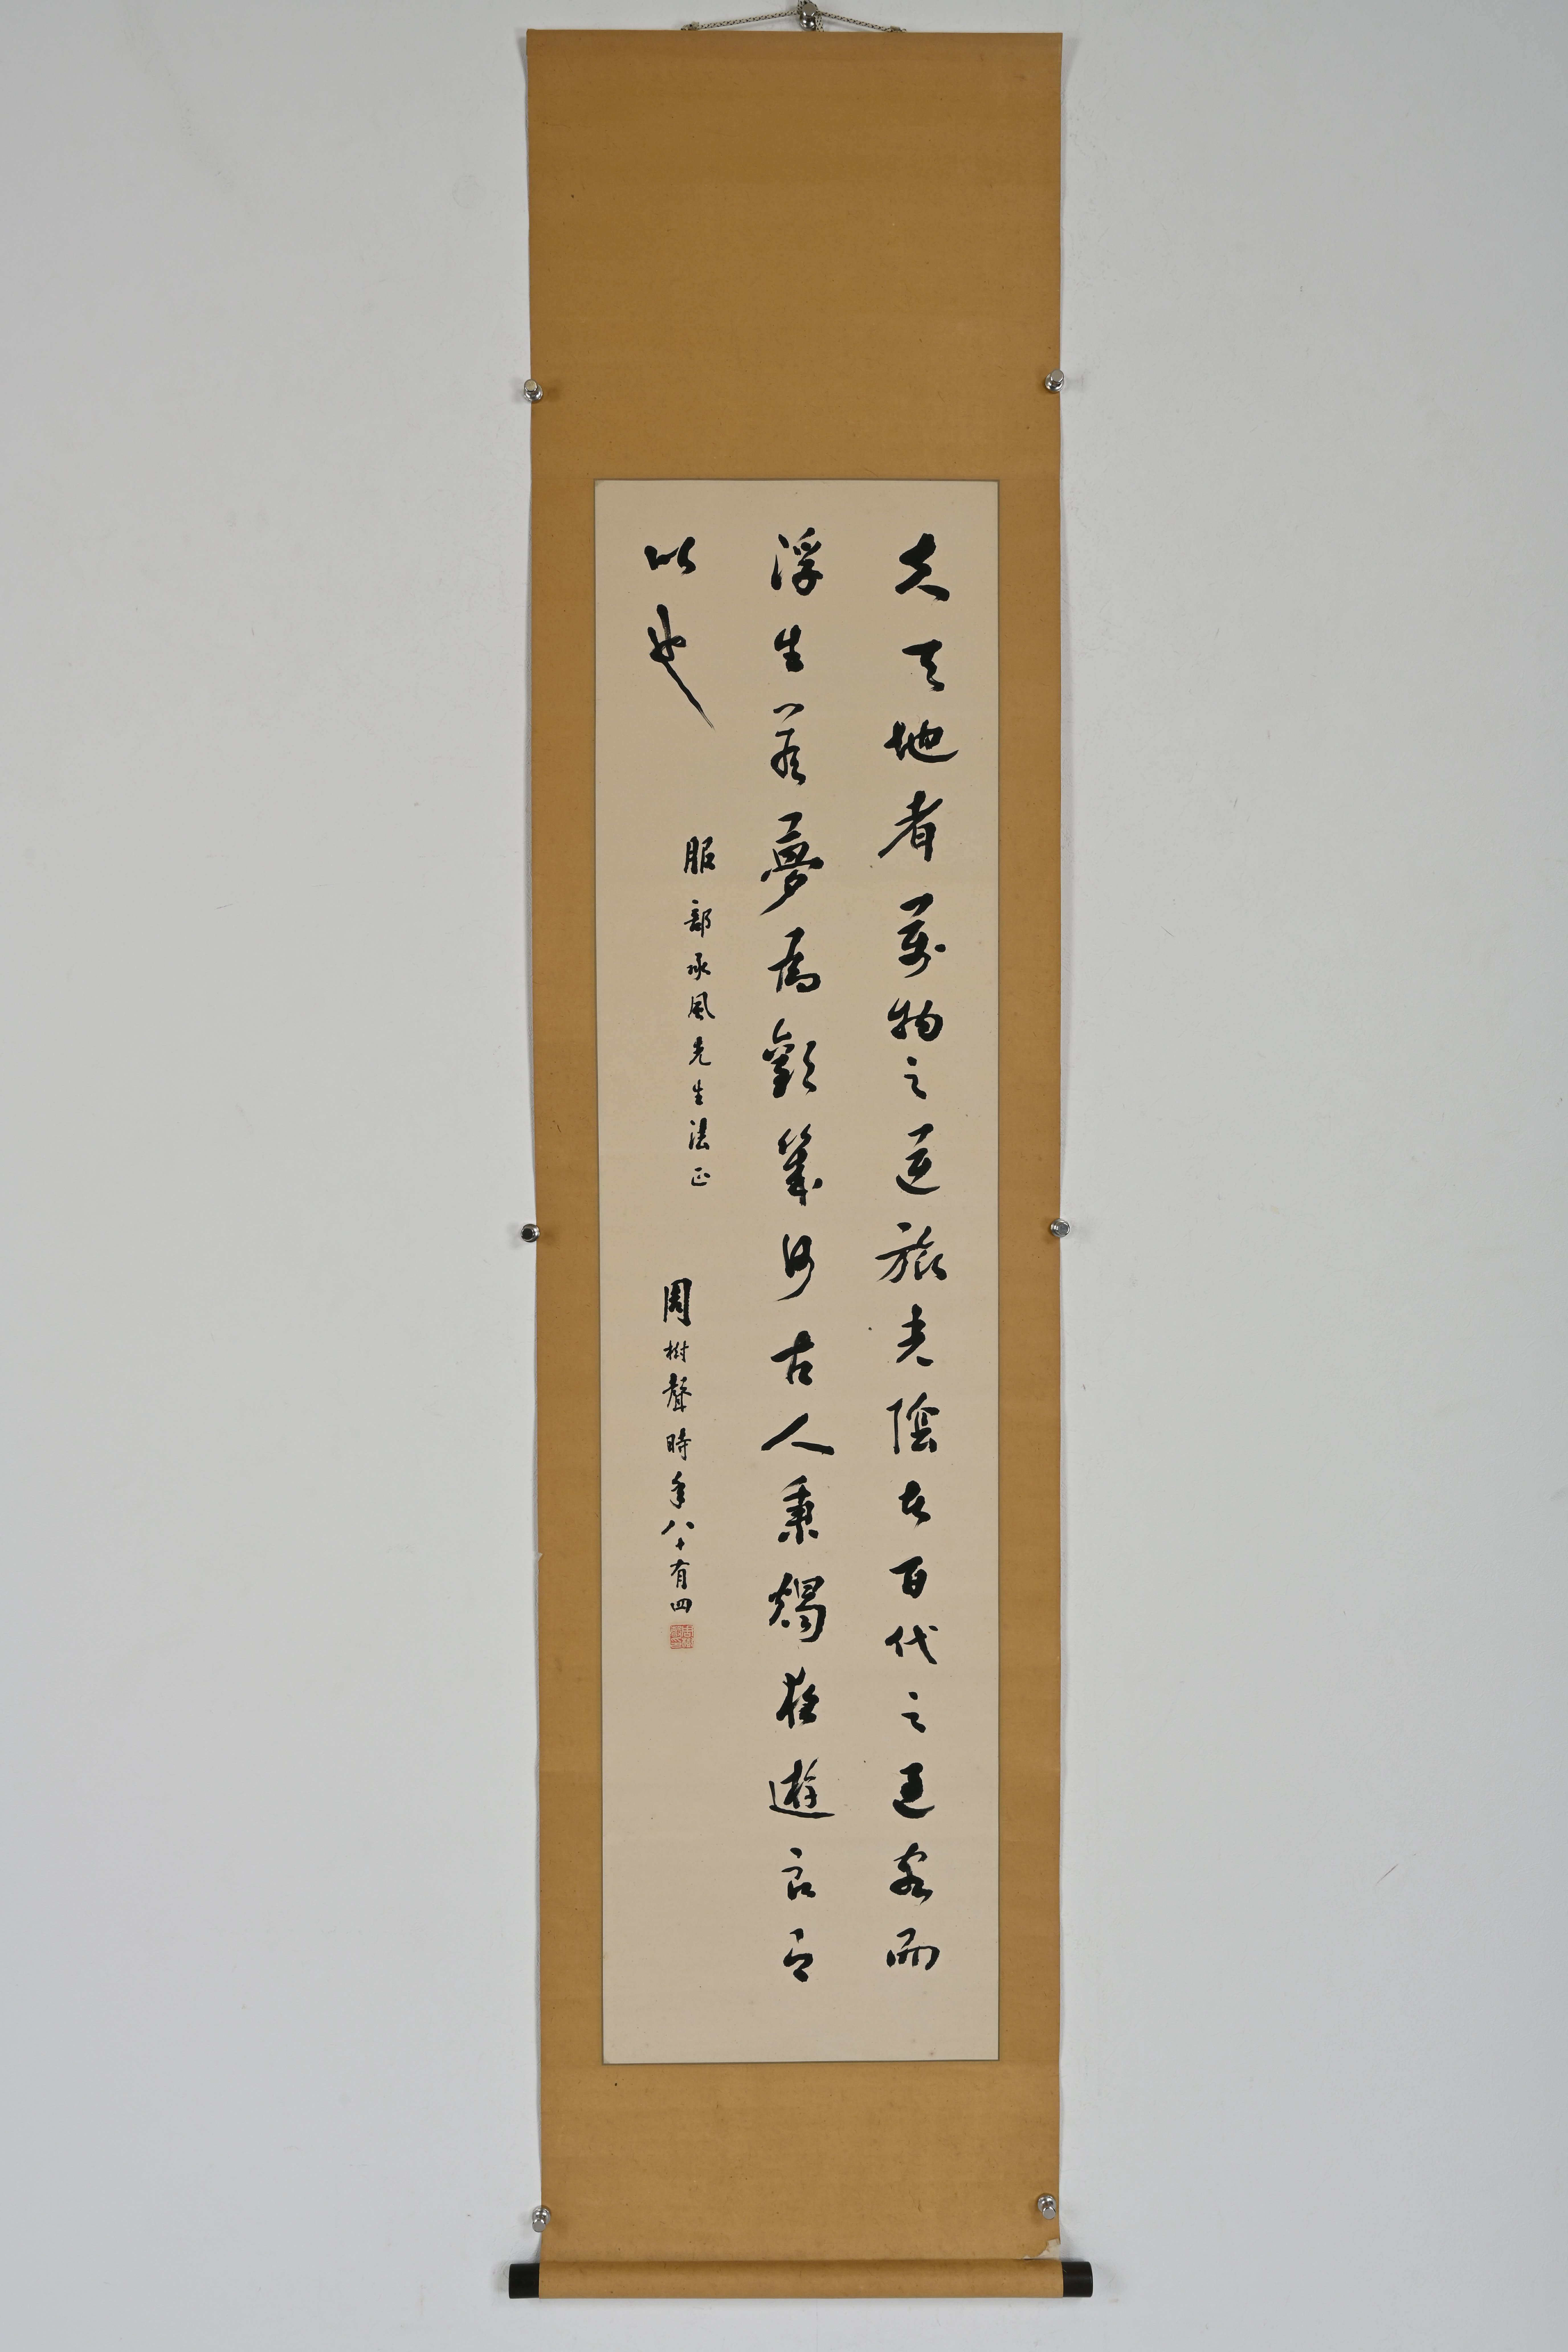 夫天地者萬物之逆旅光陰者百代之過客而
浮生若夢爲歡幾何古人秉燭夜遊良有
以也
服部承風先生法正
周樹聲時年八十有四